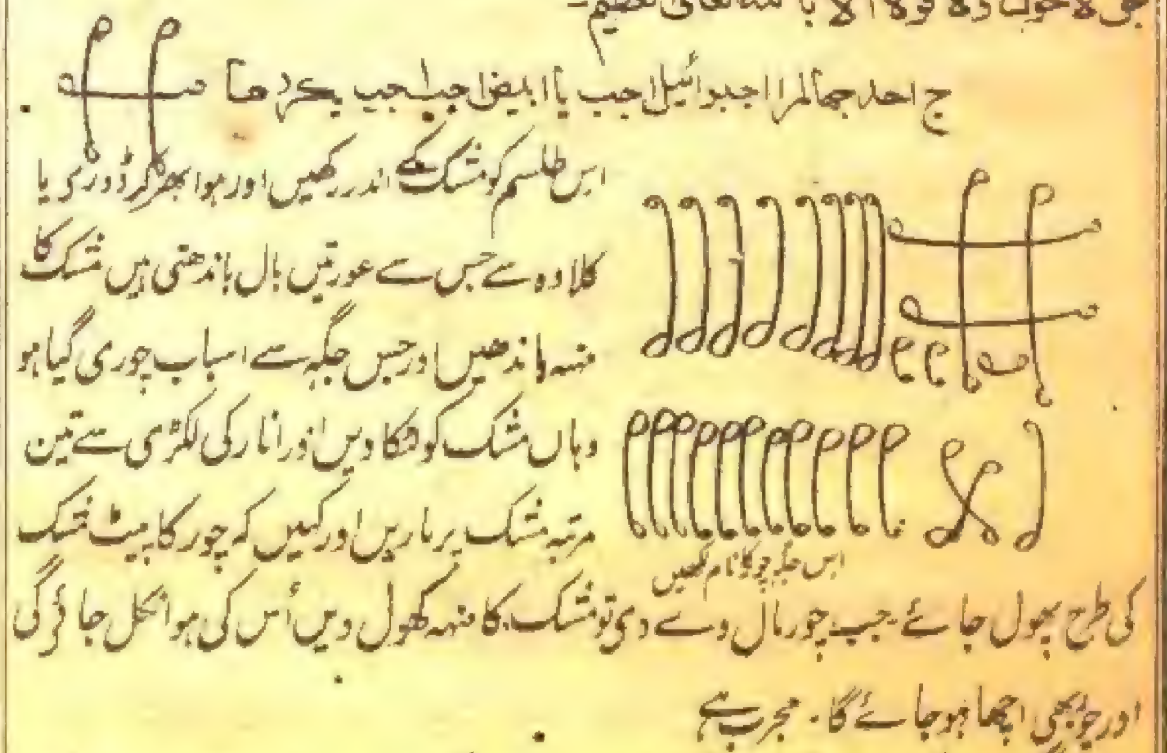 ولا قوة الا با لله تعالیٰ العظیم۔
ج احد اجب یا ابیض اجب اجب
اس طلسم کو مشک کے اندر رکھیں اور ہوا بھر کر ڈوری یا
کلاوہ سے جس سے عورتیں بال باندھتی ہیں مشک کا
منہہ باندھیں اور جس جگہ سے اسباب چوری گیا ہو
وہاں مشک کو لٹکا دیں اور انار کی لکڑی سے تین
مرتبہ مشک پر ماریں اور کہیں کہ چور کا پیٹ مشک
اس جگہ چور کا نام لکھیں
کی طرح پھول جائے جب چور مال دے دی تو مشک کا منہہ کھول دیں اُس کی ہوا نکل جائے گی
اور چور بھی اچھا ہو جائے گا۔ مجرب ہے